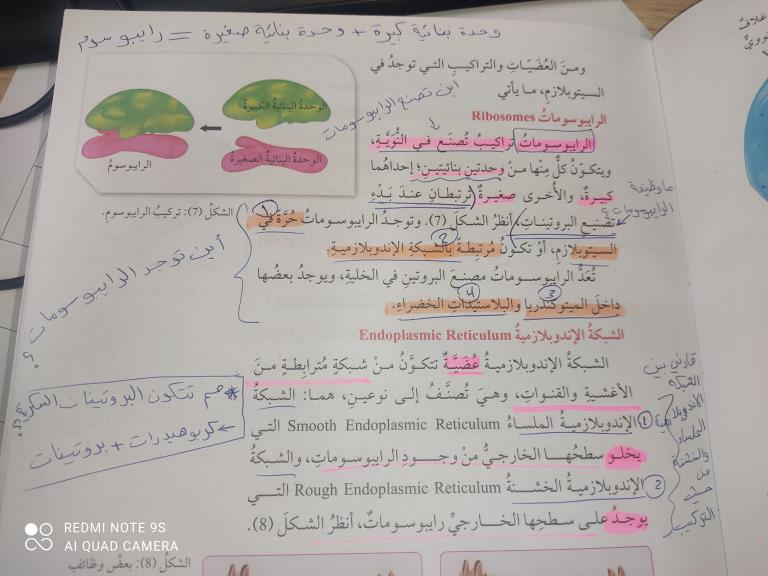 وحدة بنائية كبيرة + وحدة بنائية صغيرة = رايبوسوم
ومنَ العُضَيّاتِ والتراكيبِ التي توجدُ في
السيتوبلازمِ، ما يأتي
اين تصنع الرايبوسومات
الرايبوسوماتُ Ribosomes
الرايبوسوماتُ تراكيبُ تُصنَع في النُّوَيَّةِ،
ويتكوّنُ كلٌّ مِنْها منْ وحدتينِ بنائيتينِ؛ إحداهُما
كبيرةٌ، والأُخرى صغيرةٌ ترتبطانِ عندَ بَدْءِ
تصنيعِ البروتيناتِ، أنظرُ الشكلَ (7). وتوجدُ الرايبوسوماتُ حُرَّةً في
السيتوبلازمِ، أوْ تكونُ مُرتبطةً بالشبكةِ الإندوبلازميةِ.
تُعَدُّ الرايبوسوماتُ مصنعَ البروتينِ في الخليةِ، ويوجدُ بعضُها
داخلَ الميتوكندريا والبلاستيداتِ الخضراءِ.
1
2
3
4
ما وظيفة
الرايبوسومات؟
الوحدةُ البنائيةُ الكبيرةُ
الوحدةُ البنائيةُ الصغيرةُ
الرايبوسومُ
الشكلُ (7): تركيبُ الرايبوسومِ.
أين توجد الرايبوسومات؟
الشبكةُ الإندوبلازميةُ Endoplasmic Reticulum
الشبكةُ الإندوبلازميةُ عُضَيَّةٌ تتكوَّنُ منْ شبكةٍ مُترابطةٍ منَ
الأغشيةِ والقنواتِ، وهيَ تُصنَّفُ إلى نوعينِ، هما: الشبكةُ
1 الإندوبلازميةُ الملساءُ Smooth Endoplasmic Reticulum التي
يخلو سطحُها الخارجيُّ منْ وجودِ الرايبوسوماتِ، والشبكةُ
2 الإندوبلازميةُ الخشنةُ Rough Endoplasmic Reticulum التي
يوجدُ على سطحِها الخارجيِّ رايبوسوماتٌ، أنظرُ الشكلَ (8).
* مم تتكون البروتينات السكرية؟
← كربوهيدرات + بروتينات
قارني بين
الشبكة
الاندوبلازمية
الملساء
والخشنة
من
حيث
التركيب
الشكلُ (8): بعضُ وظائفِ
REDMI NOTE 9S
AI QUAD CAMERA